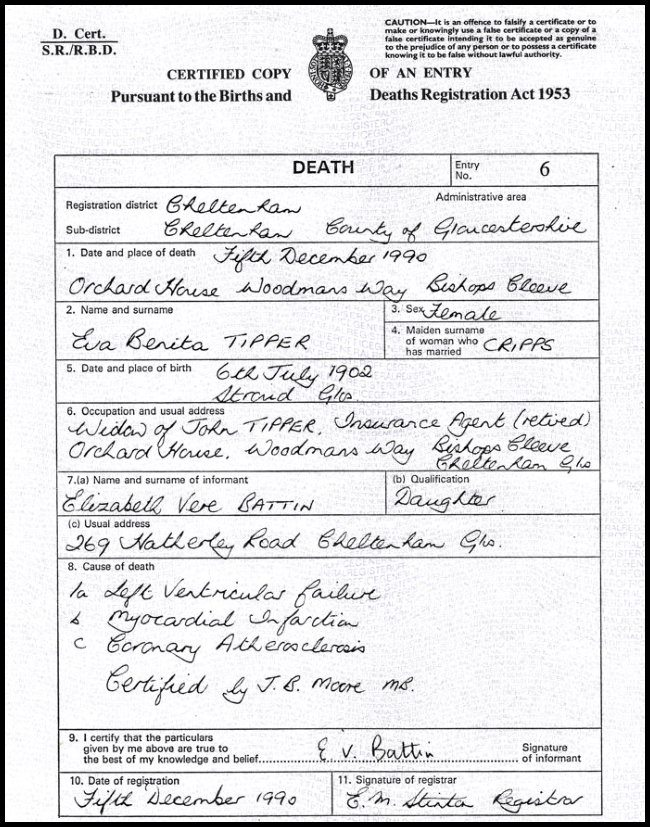 D. Cert.
S.R./R.B.D.
CAUTION—It is an offence to falsify a certificate or to
make or knowingly use a false certificate or a copy of a
false certificate intending it to be accepted as genuine
to the prejudice of any person or to possess a certificate
knowing it to be false without lawful authority.
CERTIFIED COPY OF AN ENTRY
Pursuant to the Births and Deaths Registration Act 1953
DEATH
Entry No. 6
Registration district Cheltenham
Administrative area
Sub-district Cheltenham County of Gloucestershire
1. Date and place of death Fifth December 1990
Orchard House Woodmans Way Bishops Cleeve
2. Name and surname
Eva Benita TIPPER
3. Sex Female
4. Maiden surname
of woman who
has married CRIPPS
5. Date and place of birth 6th July 1902
Stroud Glos
6. Occupation and usual address
Widow of John TIPPER, Insurance Agent (retired)
Orchard House, Woodmans Way Bishops Cleeve
Cheltenham Glos
7.(a) Name and surname of informant
Elizabeth Vere BATTIN
(b) Qualification
Daughter
(c) Usual address
269 Hatherley Road Cheltenham Glos.
8. Cause of death
1a Left Ventricular failure
b Myocardial Infarction
c Coronary Atherosclerosis
Certified by J.B. Moore MB.
9. I certify that the particulars
given by me above are true to
the best of my knowledge and belief E V. Battin Signature
of informant
10. Date of registration
Fifth December 1990
11. Signature of registrar
E.M. Registrar